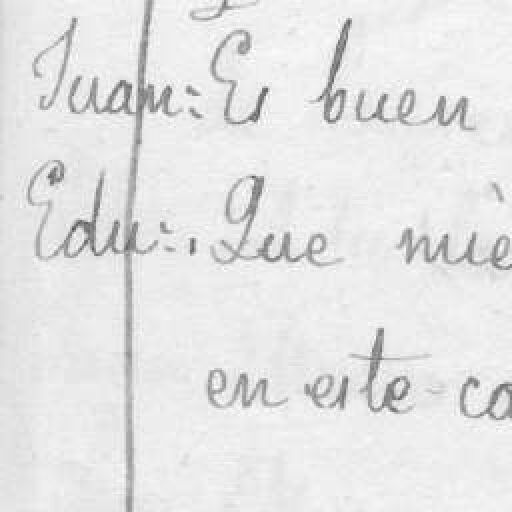 Juan: Es buen
Edu: Que miè
en este ca